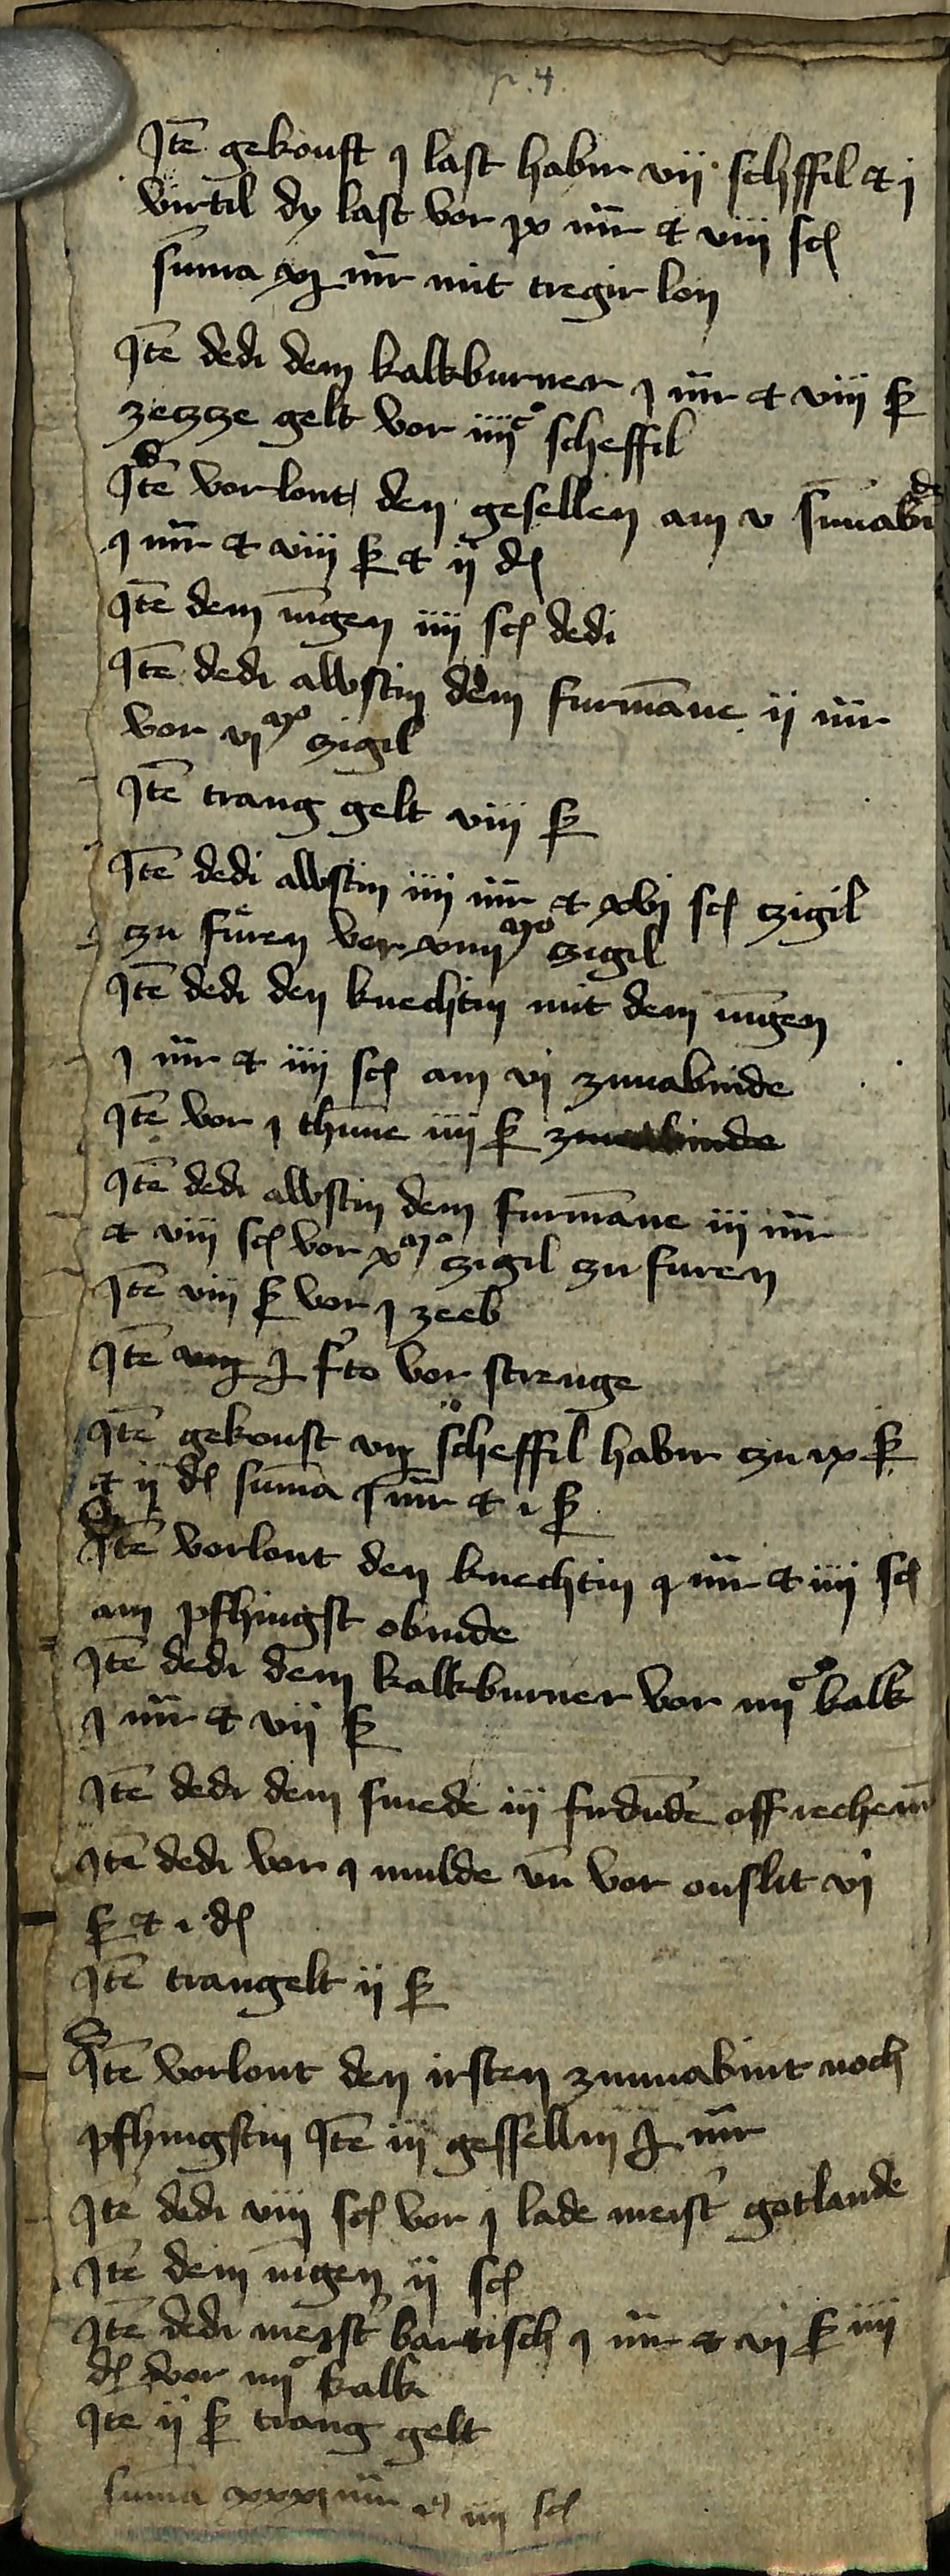 p. 4.
Itē gekouft j last habir vii schffil et j
virtil dy last vor ix mr et viii sch
sum̄a xj mr mit tregir lon
Itē dedi dem kalkburner j mr et viii sc
zetzze gelt vor iiiiᶜ scheffil
Itē vorlont den gesellen am v sunabde
j mr et viii sc et ij d
Itē dem iūgen iiii sch dedi
Itē dedi awstin dem furmāne ii mr
vor vjᵐ czigil
Itē trang gelt viii sc
Itē dedi awstin iiii mr et xvj sch czigil
czu furen vor xiiiiᵐ czigil
Itē dedi den knechtin mit dem iūgen
j mr et iiii sch am vi zunabinde
Itē vor j thune iiii sc zunabinde
Itē dedi awstin dem furmāne iii mr
et viii sch vor xᵐ czigil zu furen
Itē viii sc vor j zeeb
Itē j fto vor strenge
Itē gekouft scheffil habir czu ix sc
et ii d sum̄a mr et i sc
Itē vorlont den knechtin j mr et iiii sch
am pfhingst obinde
Itē dedi dem kalkburner vor iiiᶜ kalk
j mr et vii sc
Itē dedi dem smede iii firdūde off rechen̄
Itē dedi vor j mulde vn̄ vor onslit vi
sc et i d
Itē trangelt ii sc
Itē vorlont den irsten zunnabint noch
pfhingstin Itē iii gessellin mr
Itē dedi viii sch vor j lade meist' gotlande
Itē dem iūgen ii sch
Itē dedi meist' bartisch j mr et vj sc iiii
d vor iiiᶜ kalk
Itē ii sc trang gelt
sum̄a xxxj mr et iiii sch